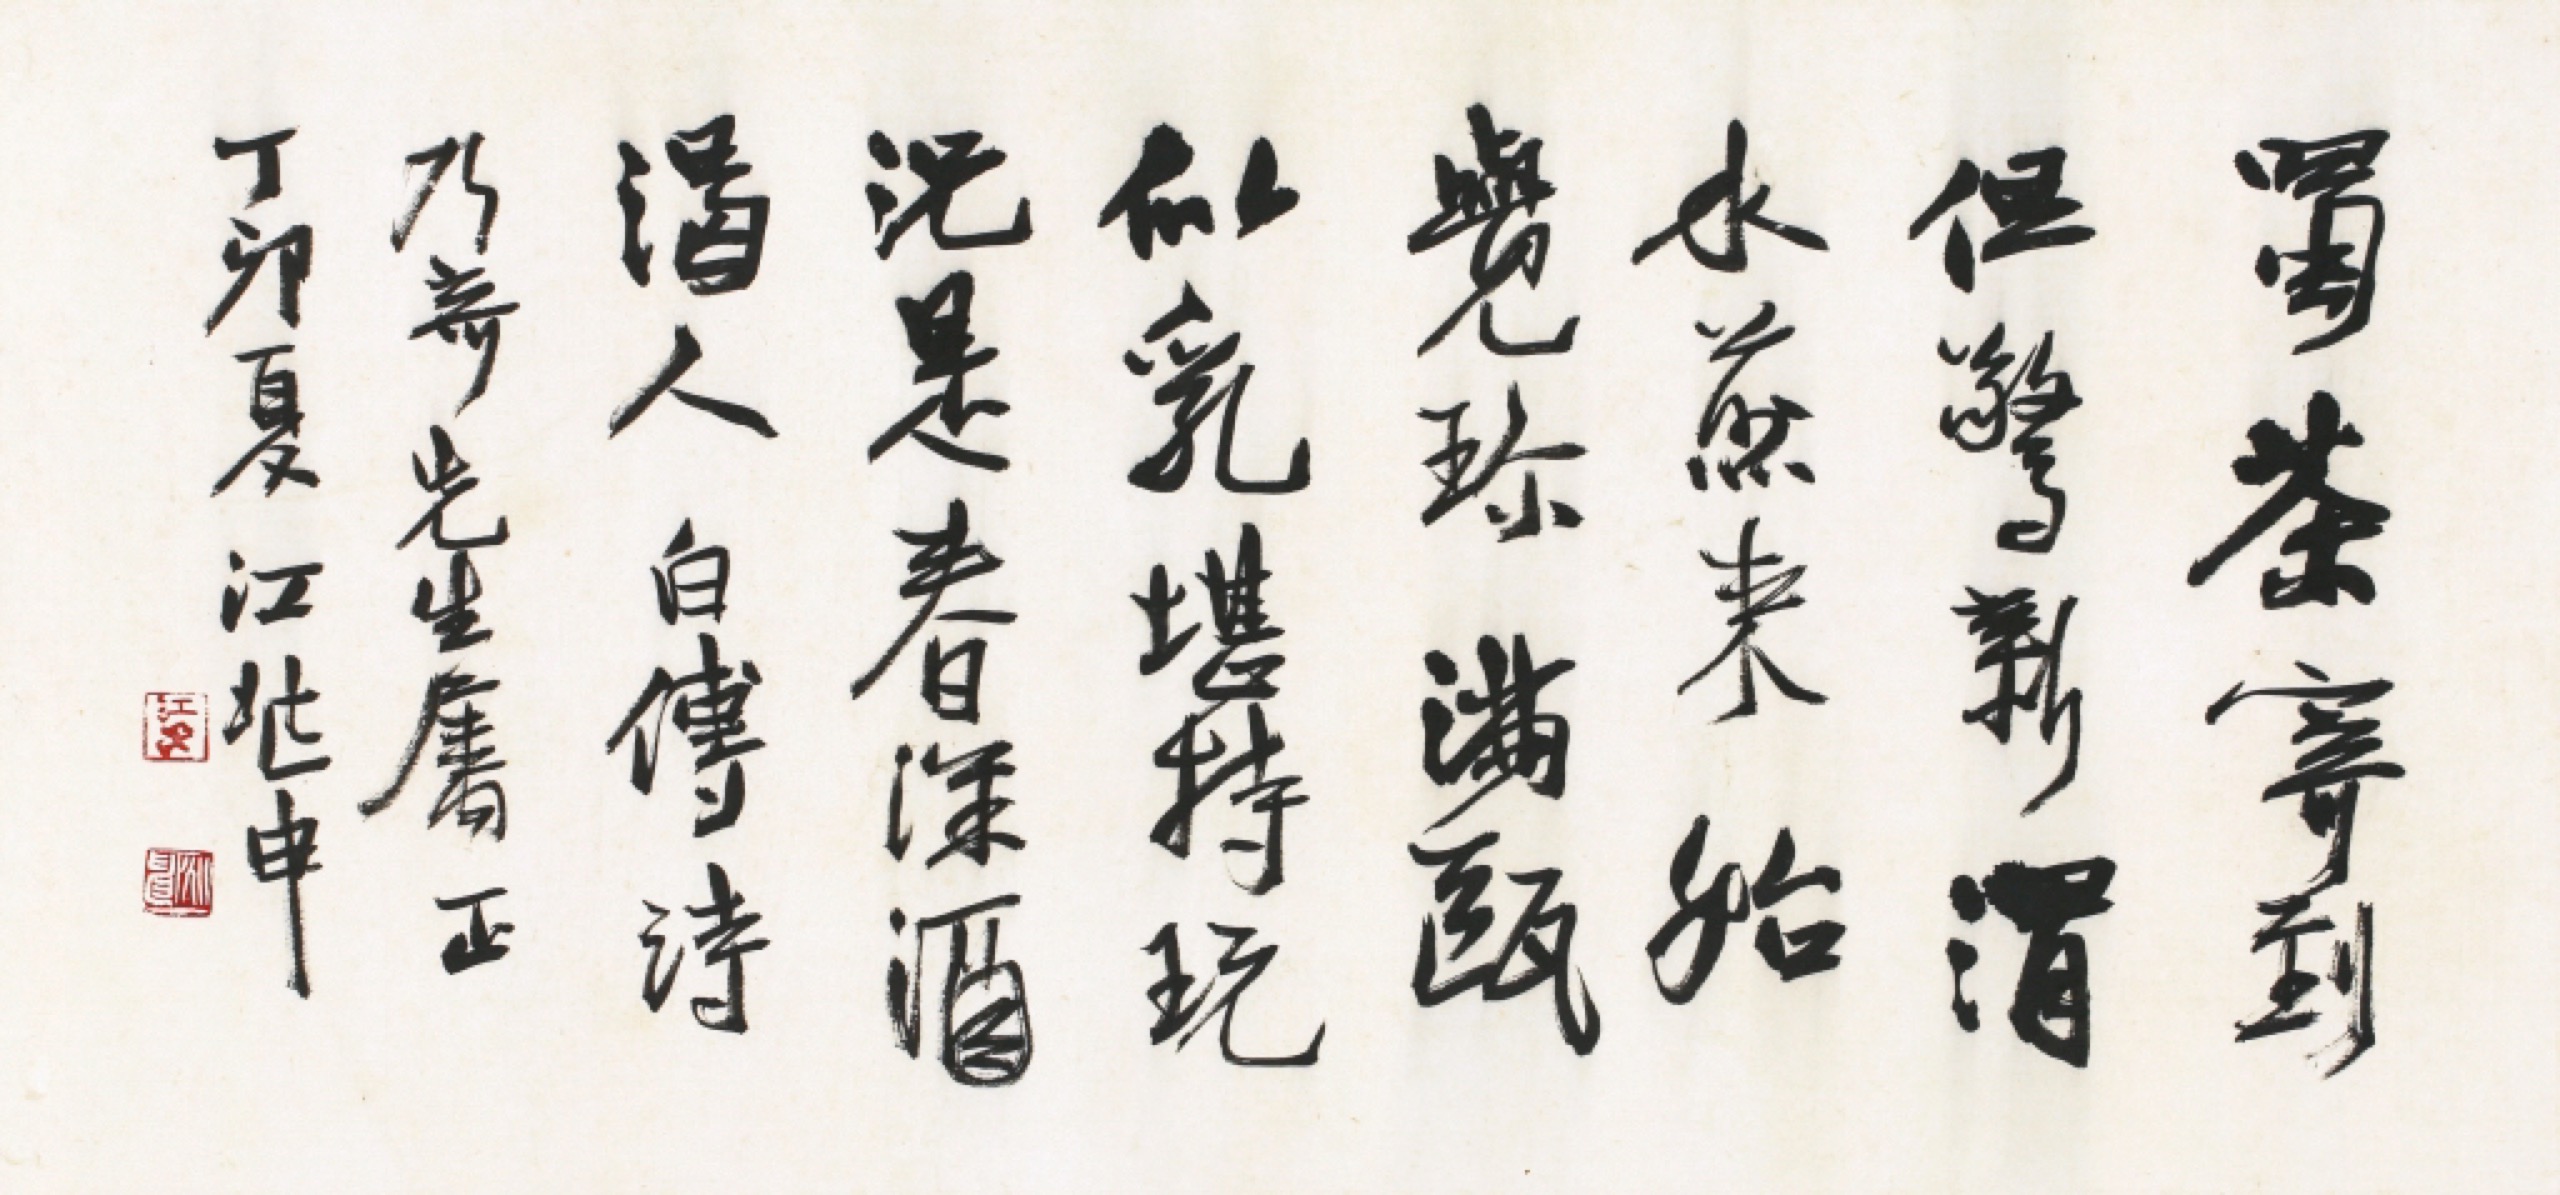 蜀茶寄到
但驚新渭
水煎来始
覺珎滿甌
似乳堪持玩
況是春深酒
渴人 白傅詩
乃奇先生屬正
丁卯夏 江兆申